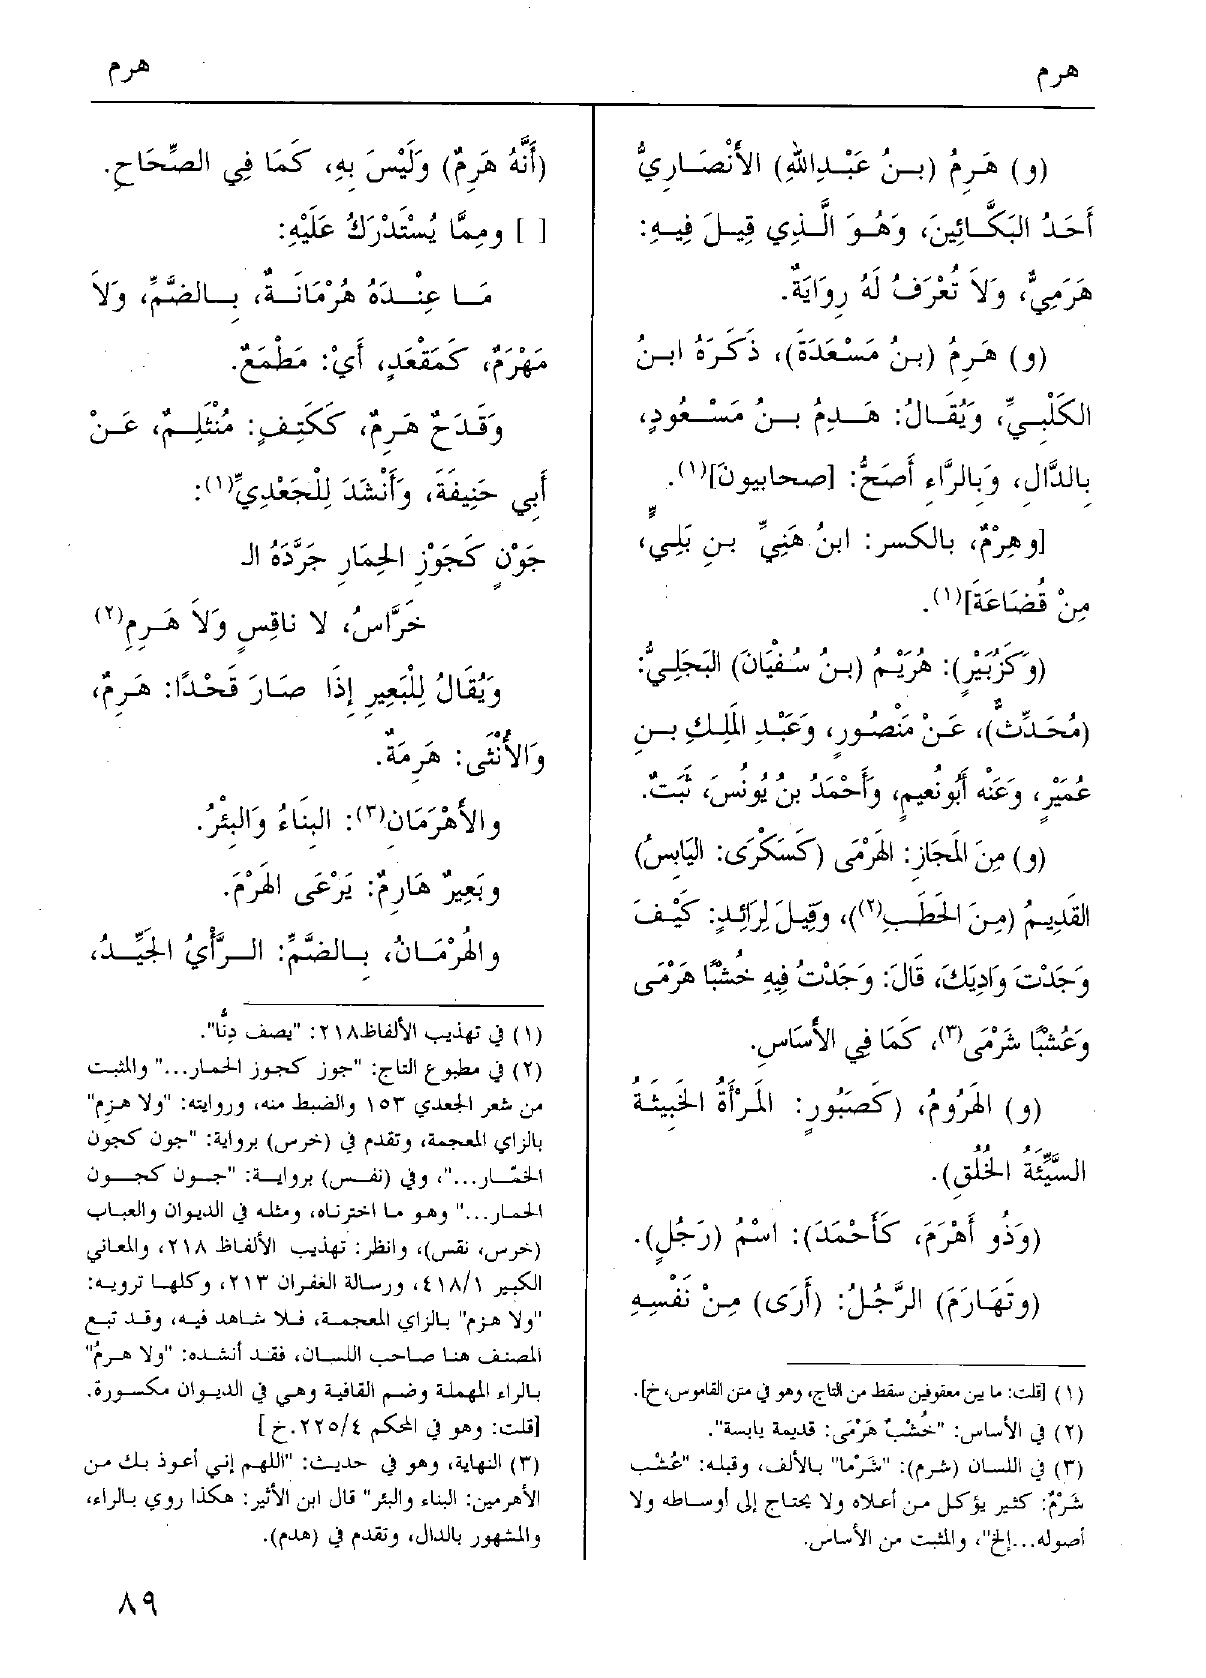 هرم
هرم
(و) هَرِمُ (بنُ عَبْدِاللهِ) الأَنْصَارِيُّ
أَحَدُ البَكَّائِينَ، وَهُوَ الَّذِي قِيلَ فِيهِ:
هَرَمِيٌّ، وَلاَ تُعْرَفُ لَهُ رِوَايَةٌ.
(و) هَرِمُ (بنُ مَسْعَدَةَ)، ذَكَرَهُ ابنُ
الكَلْبِيِّ، وَيُقَالُ: هَدِمُ بنُ مَسْعُودٍ،
بِالدَّالِ، وَبِالرَّاءِ أَصَحُّ: [صحابيون](١).
[وهِرْمٌ، بالكسر: ابنُ هَنِيِّ بنِ بَلِيٍّ،
مِنْ قُضَاعَةَ](١).
(وَكَزُبَيْرٍ): هُرَيْمُ (بنُ سُفْيَانَ) البَجَلِيُّ:
(مُحَدِّثٌ)، عَنْ مَنْصُورٍ، وَعَبْدِ المَلِكِ بنِ
عُمَيْرٍ، وَعَنْه أَبُونُعيمٍ، وَأَحْمَدُ بنُ يُونُسَ، ثَبَتٌ.
(و) مِنَ المَجَازِ: الهَرْمَى (كَسَكْرَى: اليَابِسُ)
القَدِيمُ (مِنَ الحَطَبِ(٢))، وَقِيلَ لِرَائِدٍ: كَيْفَ
وَجَدْتَ وَادِيَكَ، قَالَ: وَجَدْتُ فِيهِ خُشْبًا هَرْمَى
وَعُشْبًا شَرْمَى(٣)، كَمَا فِي الأَسَاسِ.
(و) الهَرُومُ، (كَصَبُورٍ: المَرْأَةُ الخَبِيثَةُ
السَّيِّئَةُ الخُلُقِ).
(وَذُو أَهْرَمَ، كَأَحْمَدَ): اسْمُ (رَجُلٍ).
(وتَهَارَمَ) الرَّجُلُ: (أَرَى) مِنْ نَفْسِهِ
(١) [قلت: ما بين معقوفين سقط من التاج، وهو في متن القاموس، خ].
(٢) في الأساس: "خُشْبٌ هَرْمَى: قديمة يابسة".
(٣) في اللسان (شرم): "شَرْما" بالألف، وقبله: "عُشْب
شَرْمٌ: كثير يؤكل من أعلاه ولا يحتاج إلى أوساطه ولا
أصوله...إلخ"، والمثبت من الأساس.
(أَنَّهُ هَرِمٌ) وَلَيْسَ بِهِ، كَمَا فِي الصِّحَاحِ.
[ ] ومِمَّا يُسْتَدْرَكُ عَلَيْهِ:
مَا عِنْدَهُ هُرْمَانَةٌ، بِالضَّمِّ، وَلاَ
مَهْرَمٌ، كَمَقْعَدٍ، أَيْ: مَطْمَعٌ.
وَقَدَحٌ هَرِمٌ، كَكَتِفٍ: مُنْثَلِمٌ، عَنْ
أَبِي حَنِيفَةَ، وَأَنْشَدَ لِلْجَعْدِيِّ(١):
جَوْنٍ كَجَوْزِ الحِمَارِ جَرَّدَهُ الـ
خَرَّاسُ، لا ناقِسٍ وَلاَ هَرِمِ(٢)
وَيُقَالُ لِلْبَعِيرِ إِذَا صَارَ قَحْدًا: هَرِمٌ،
وَالأُنْثَى: هَرِمَةٌ.
والأَهْرَمَانِ(٣): البِنَاءُ وَالبِئْرُ.
وبَعِيرٌ هَارِمٌ: يَرْعَى الهَرْمَ.
والهُرْمَانُ، بِالضَّمِّ: الرَّأْيُ الجَيِّدُ،
(١) في تهذيب الألفاظ٢١٨: "يصف دِنًّا".
(٢) في مطبوع التاج: "جوز كجوز الحمار..." والمثبت
من شعر الجعدي ١٥٣ والضبط منه، وروايته: "ولا هزم"
بالزاي المعجمة، وتقدم في (خرس) برواية: "جون كجون
الخمَّار..."، وفي (نفس) برواية: "جون كجون
الحمار..." وهو ما اخترناه، ومثله في الديوان والعباب
(خرس، نقس)، وانظر: تهذيب الألفاظ ٢١٨، والمعاني
الكبير ٤١٨/١، ورسالة الغفران ٢١٣، وكلها ترويه:
"ولا هزم" بالزاي المعجمة، فلا شاهد فيه، وقد تبع
المصنف هنا صاحب اللسان، فقد أنشده: "ولا هرمُ"
بالراء المهملة وضم القافية وهي في الديوان مكسورة.
[قلت: وهو في المحكم ٢٢٥/٤.خ]
(٣) النهاية، وهو في حديث: "اللهم إني أعوذ بك من
الأهرمين: البناء والبئر" قال ابن الأثير: هكذا روي بالراء،
والمشهور بالدال، وتقدم في (هدم).
٨٩